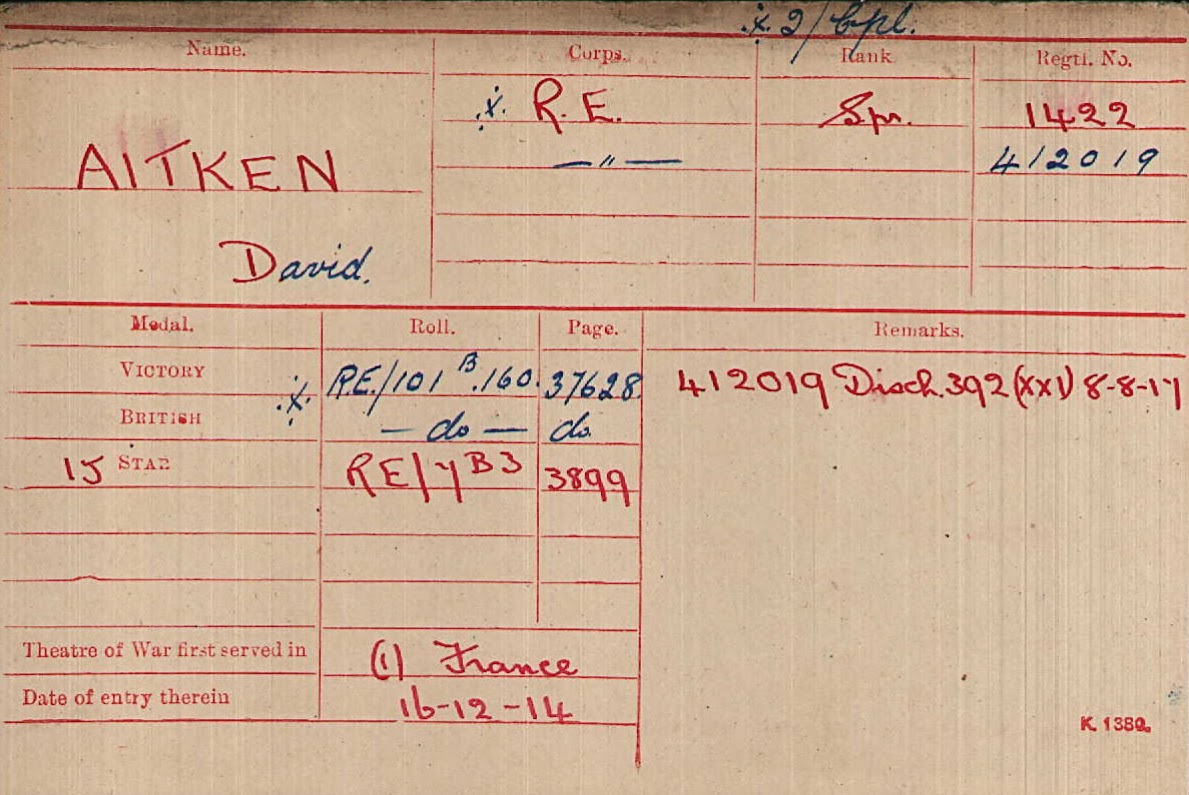 ·x· 2/Cpl.
Name. Corps. Rank Regtl. No.
·x· R.E. Spr. 1422
AITKEN —"— 412019
David.
Medal. Roll. Page. Remarks.
VICTORY ·x· R.E./101 B.160. 37628 412019 Disch. 392 (XXI) 8-8-17
BRITISH — do — do.
15 STAR RE/7B3 3899
Theatre of War first served in (1) France
Date of entry therein 16-12-14
K. 1380.